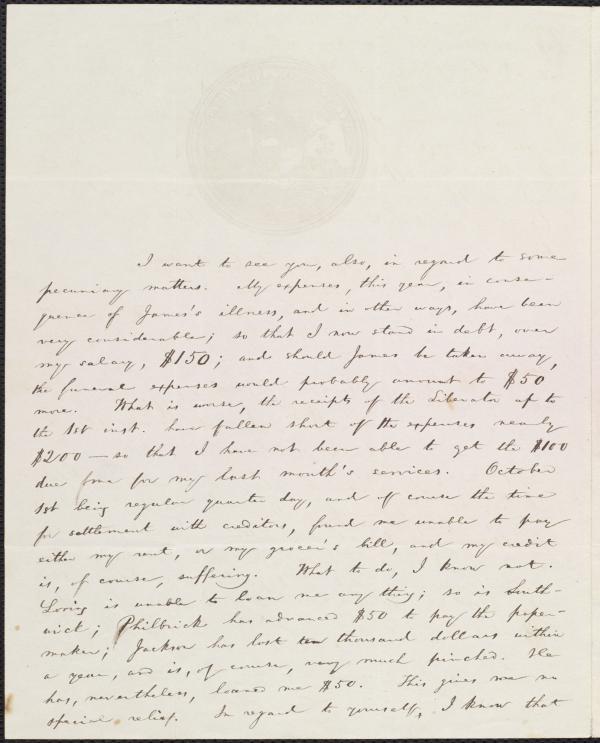 I want to see you, also, in regard to some
pecuniary matters. My expenses, this year, in conse-
quence of James's illness, and in other ways, have been
very considerable; so that I now stand in debt, over
my salary, $150; and should James be taken away,
the funeral expenses would probably amount to $50
more. What is worse, the receipts of the Liberator up to
the 1st inst. have fallen short of the expenses nearly
$200 — so that I have not been able to get the $100
due me for my last month's services. October
1st being regular quarter day, and of course the time
for settlement with creditors, found me unable to pay
either my rent, or my grocer's bill, and my credit
is, of course, suffering. What to do, I know not.
Loring is unable to loan me any thing; so is South-
wick; Philbrick has advanced $50 to pay the paper-
maker; Jackson has lost ten thousand dollars within
a year, and is, of course, very much pinched. He
has, nevertheless, loaned me $50. This gives me no
special relief. In regard to yourself, I know that